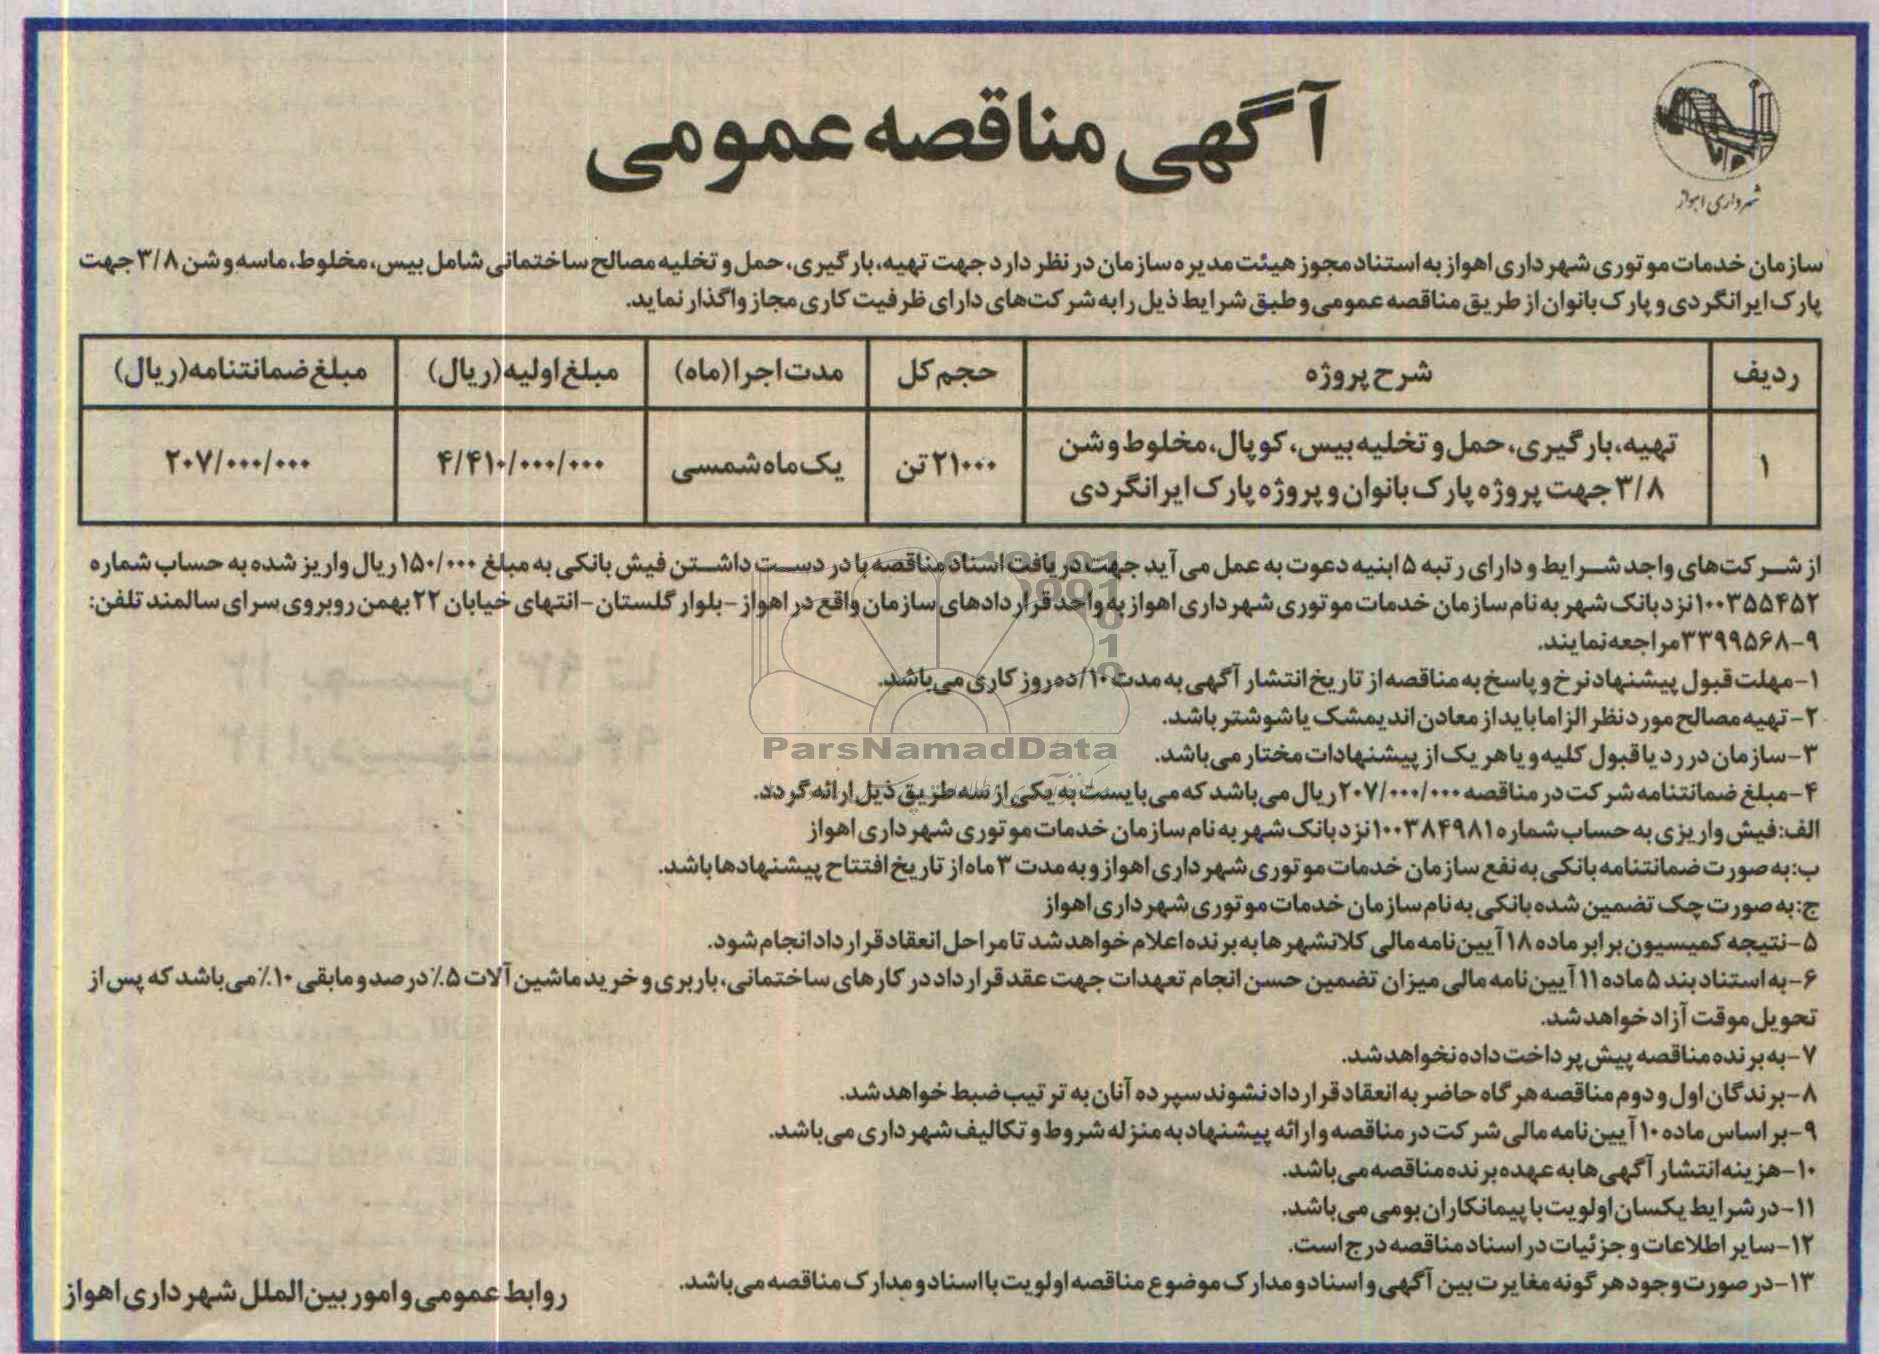 آگهی مناقصه عمومی
شهرداری اهواز
سازمان خدمات موتوری شهرداری اهواز به استناد مجوز هیئت مدیره سازمان در نظر دارد جهت تهیه، بارگیری، حمل و تخلیه مصالح ساختمانی شامل بیس، مخلوط، ماسه و شن ۳/۸ جهت
پارک ایرانگردی و پارک بانوان از طریق مناقصه عمومی و طبق شرایط ذیل را به شرکت‌های دارای ظرفیت کاری مجاز واگذار نماید.
ردیف | شرح پروژه | حجم کل | مدت اجرا (ماه) | مبلغ اولیه (ریال) | مبلغ ضمانتنامه (ریال)
۱ | تهیه، بارگیری، حمل و تخلیه بیس، کوپال، مخلوط و شن | ۲۱۰۰۰ تن | یک ماه شمسی | ۴/۴۱۰/۰۰۰/۰۰۰ | ۲۰۷/۰۰۰/۰۰۰
۳/۸ جهت پروژه پارک بانوان و پروژه پارک ایرانگردی
از شرکت‌های واجد شرایط و دارای رتبه ۵ ابنیه دعوت به عمل می آید جهت دریافت اسناد مناقصه با در دست داشتن فیش بانکی به مبلغ ۱۵۰/۰۰۰ ریال واریز شده به حساب شماره
۱۰۰۳۵۵۴۵۲ نزد بانک شهر به نام سازمان خدمات موتوری شهرداری اهواز به واحد قراردادهای سازمان واقع در اهواز - بلوار گلستان - انتهای خیابان ۲۲ بهمن روبروی سرای سالمند تلفن:
۳۳۹۹۵۶۸-۹ مراجعه نمایند.
۱- مهلت قبول پیشنهاد نرخ و پاسخ به مناقصه از تاریخ انتشار آگهی به مدت ۱۰/ده روز کاری می‌باشد.
۲- تهیه مصالح مورد نظر الزاما باید از معادن اندیمشک یا شوشتر باشد.
ParsNamadData
۳- سازمان در رد یا قبول کلیه و یا هر یک از پیشنهادات مختار می‌باشد.
۴- مبلغ ضمانتنامه شرکت در مناقصه ۲۰۷/۰۰۰/۰۰۰ ریال می‌باشد که می‌بایست به یکی از سه طریق ذیل ارائه گردد.
الف: فیش واریزی به حساب شماره ۱۰۰۳۸۴۹۸۱ نزد بانک شهر به نام سازمان خدمات موتوری شهرداری اهواز
ب: به صورت ضمانتنامه بانکی به نفع سازمان خدمات موتوری شهرداری اهواز و به مدت ۳ ماه از تاریخ افتتاح پیشنهادها باشد.
ج: به صورت چک تضمین شده بانکی به نام سازمان خدمات موتوری شهرداری اهواز
۵- نتیجه کمیسیون برابر ماده ۱۸ آیین‌نامه مالی کلانشهرها به برنده اعلام خواهد شد تا مراحل انعقاد قرارداد انجام شود.
۶- به استناد بند ۵ ماده ۱۱ آیین‌نامه مالی میزان تضمین حسن انجام تعهدات جهت عقد قرارداد در کارهای ساختمانی، باربری و خرید ماشین آلات ۵٪ درصد و مابقی ۱۰٪ می‌باشد که پس از
تحویل موقت آزاد خواهد شد.
۷- به برنده مناقصه پیش پرداخت داده نخواهد شد.
۸- برندگان اول و دوم مناقصه هرگاه حاضر به انعقاد قرارداد نشوند سپرده آنان به ترتیب ضبط خواهد شد.
۹- بر اساس ماده ۱۰ آیین‌نامه مالی شرکت در مناقصه و ارائه پیشنهاد به منزله شروط و تکالیف شهرداری می‌باشد.
۱۰- هزینه انتشار آگهی‌ها به عهده برنده مناقصه می‌باشد.
۱۱- در شرایط یکسان اولویت با پیمانکاران بومی می باشد.
۱۲- سایر اطلاعات و جزئیات در اسناد مناقصه درج است.
۱۳- در صورت وجود هرگونه مغایرت بین آگهی و اسناد و مدارک موضوع مناقصه اولویت با اسناد و مدارک مناقصه می‌باشد.
روابط عمومی و امور بین‌الملل شهرداری اهواز